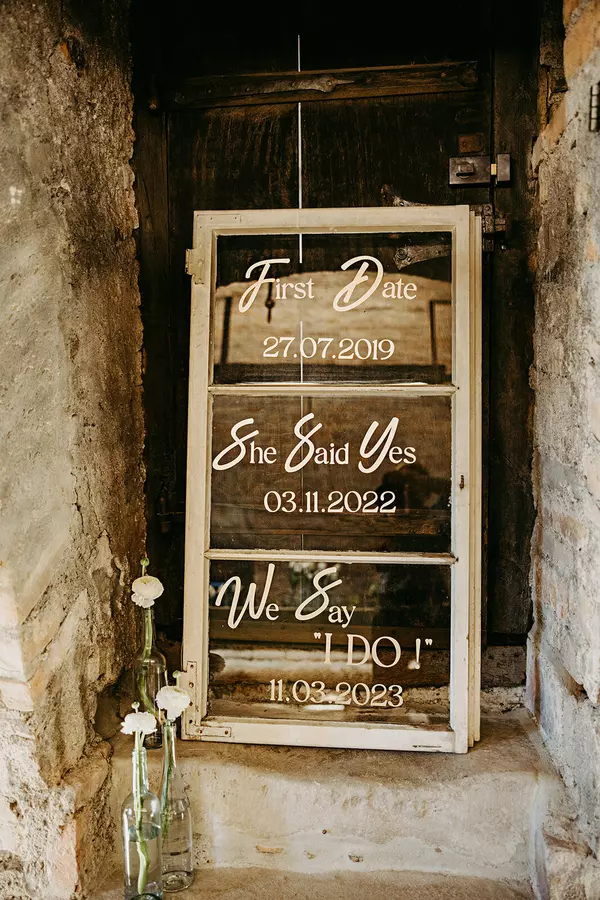 First Date
27.07.2019
She Said Yes
03.11.2022
We Say
"I DO !"
11.03.2023